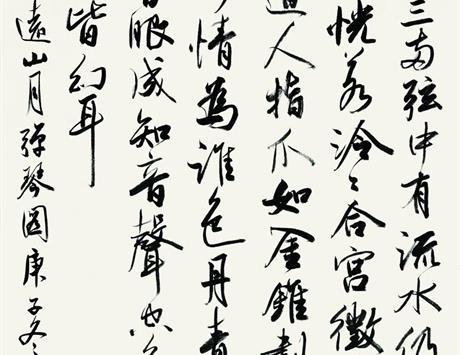 三兩弦中有流水仍
恍若泠泠合宮徵
道人指爪如金錐
情為誰色丹青
眼成知音聲
皆幻耳
遠山月彈琴圖庚子冬